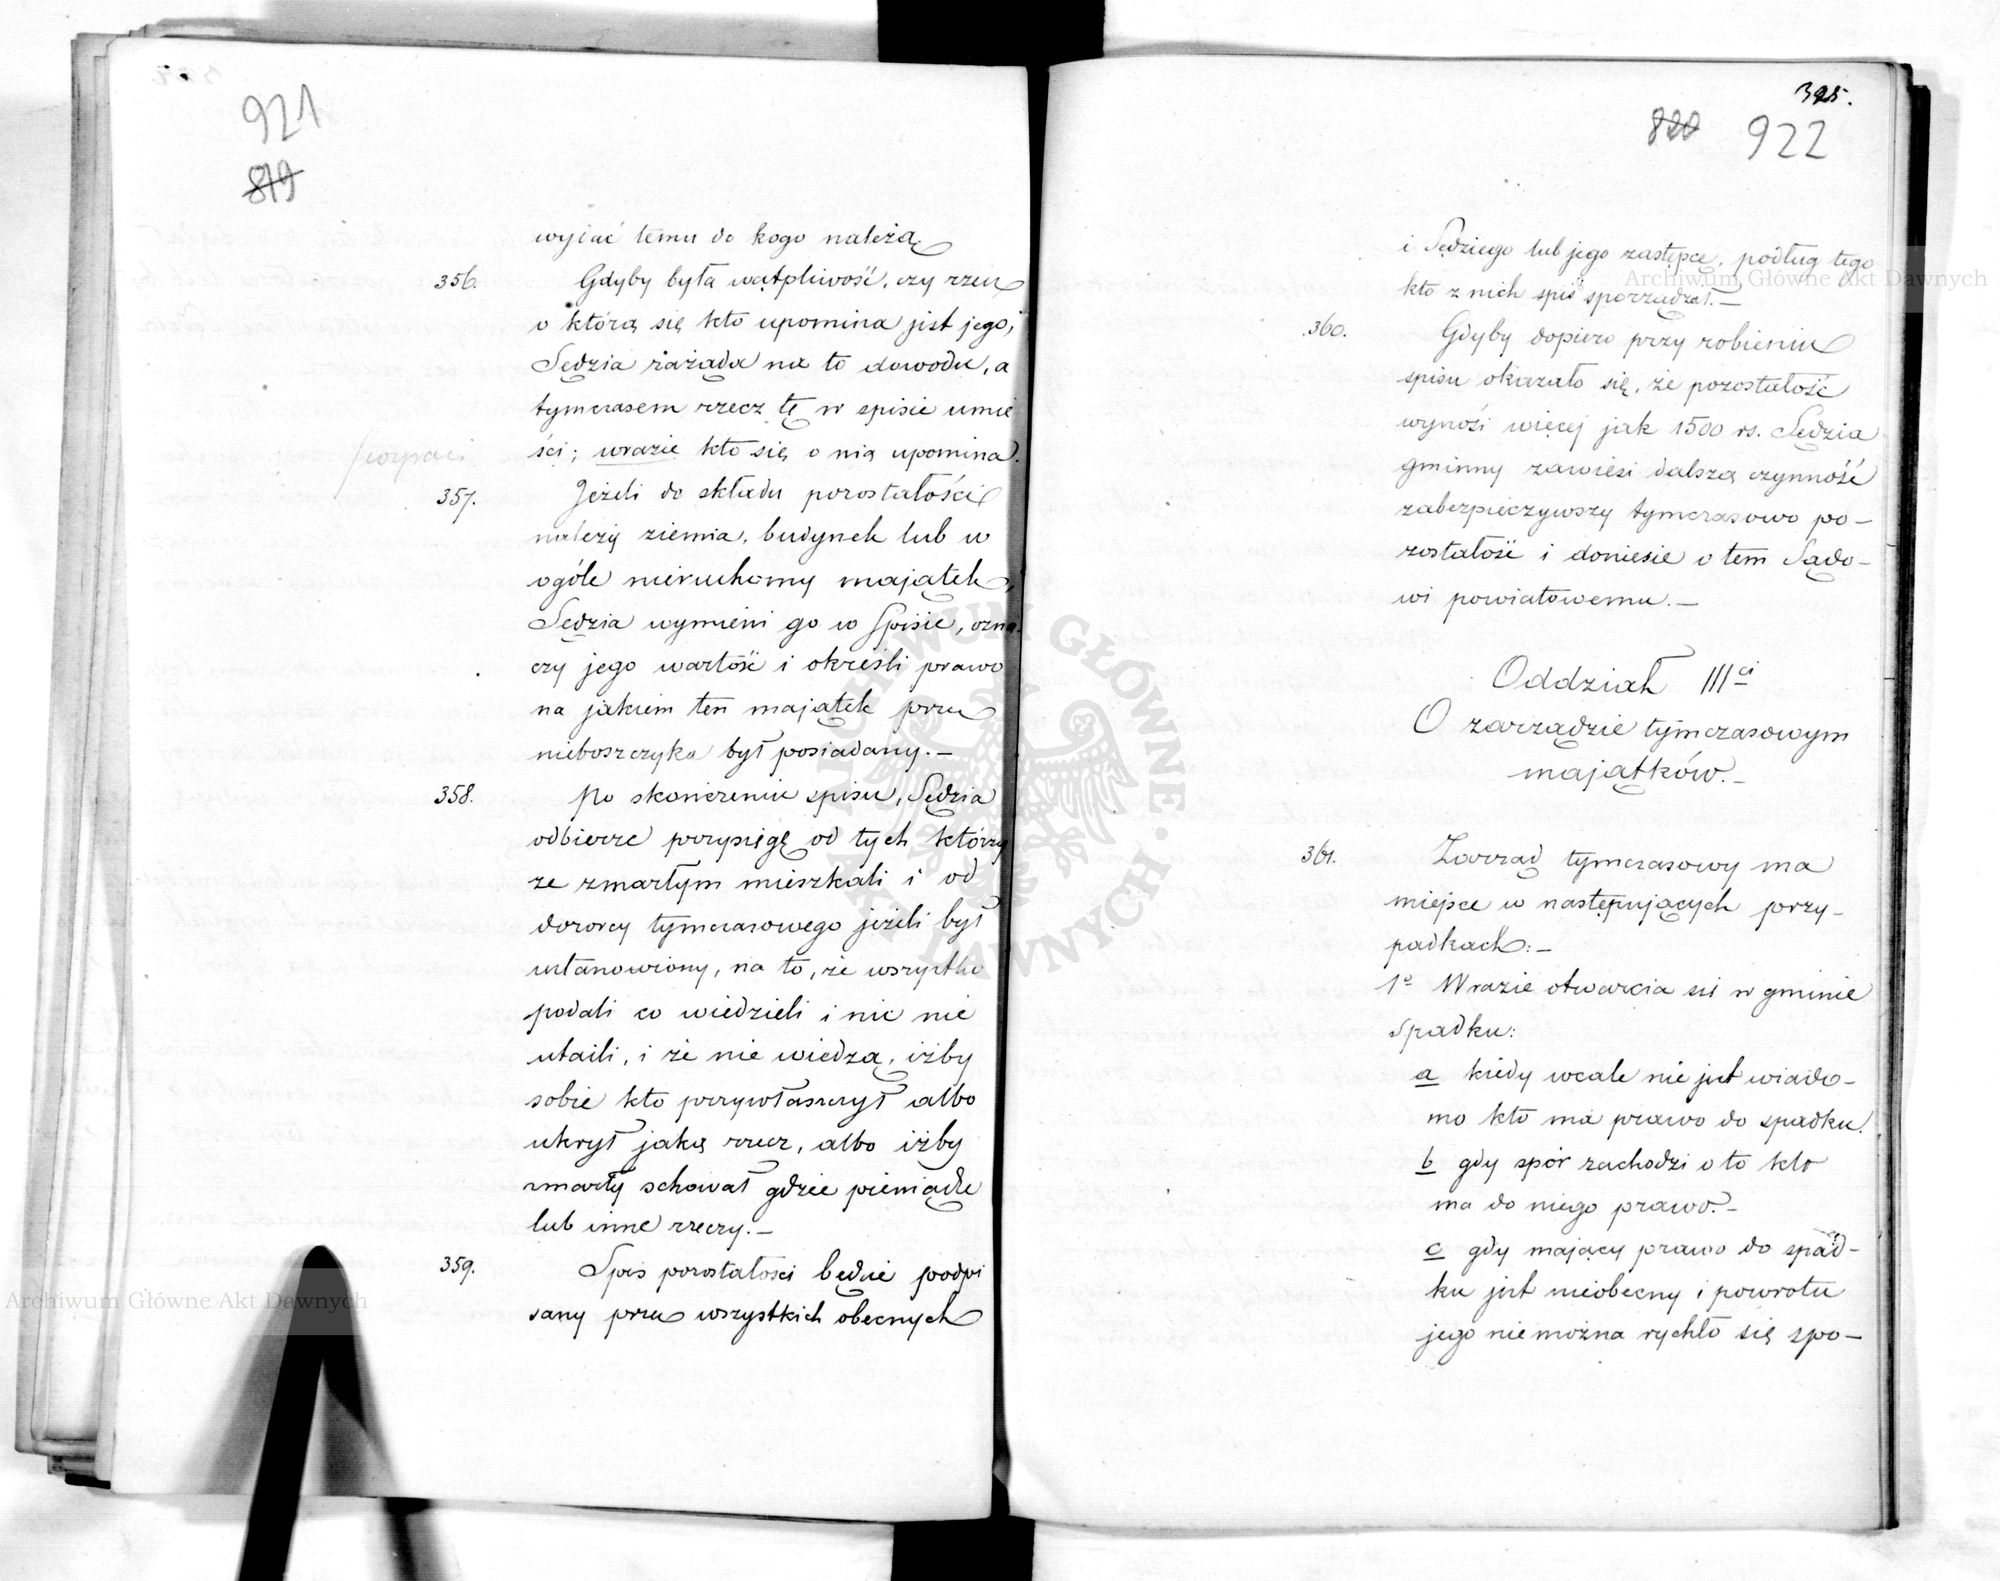 921
819
wyjąć temu do kogo należą
356. Gdyby była wątpliwość, czy rzecz
o którą się kto upomina jest jego,
Sędzia zażąda na to dowodu, a
tymczasem rzecz tę w spisie umie
ści; wrazie kto się o nią upomina.
357. Jeżeli do składu pozostałości
należy ziemia, budynek lub w
ogóle nieruchomy majątek,
Sędzia wymieni go w Spisie, ozna
czy jego wartość i określi prawo
na jakiem ten majątek przez
nieboszczyka był posiadany.—
358. Po skończeniu spisu, Sędzia
odbierze przysięgę od tych którzy
ze zmarłym mieszkali i od
dozorcy tymczasowego jeżeli był
ustanowiony, na to, że wszystko
podali co wiedzieli i nic nie
utaili, i że nie wiedzą, iżby
sobie kto przywłaszczył albo
ukrył jaką rzecz, albo iżby
zmarły schował gdzie pieniądze
lub inne rzeczy.—
359. Spis pozostałości będzie podpi
sany przez wszystkich obecnych
395.
820 922
i Sędziego lub jego zastępcę, podług tego
kto z nich spis sporządzał.—
360. Gdyby dopiero przy robieniu
spisu okazało się, że pozostałość
wynosi więcej jak 1500 rs. Sędzia
gminny zawiesi dalszą czynność
zabezpieczywszy tymczasowo po-
zostałość i doniesie o tem Sądo-
wi powiatowemu.—
Oddział III ci
O zarządzie tymczasowym
majątków.—
361. Zarząd tymczasowy ma
miejsce w następujących przy-
padkach:—
1º W razie otwarcia się w gminie
spadku:
a kiedy wcale nie jest wiado-
mo kto ma prawo do spadku.
b gdy spór zachodzi o to kto
ma do niego prawo.—
c gdy mający prawo do spad-
ku jest nieobecny i powrotu
jego niemożna rychło się spo-
Archiwum Główne Akt Dawnych
Archiwum Główne Akt Dawnych
ARCHIWUM GŁÓWNE AKT DAWNYCH